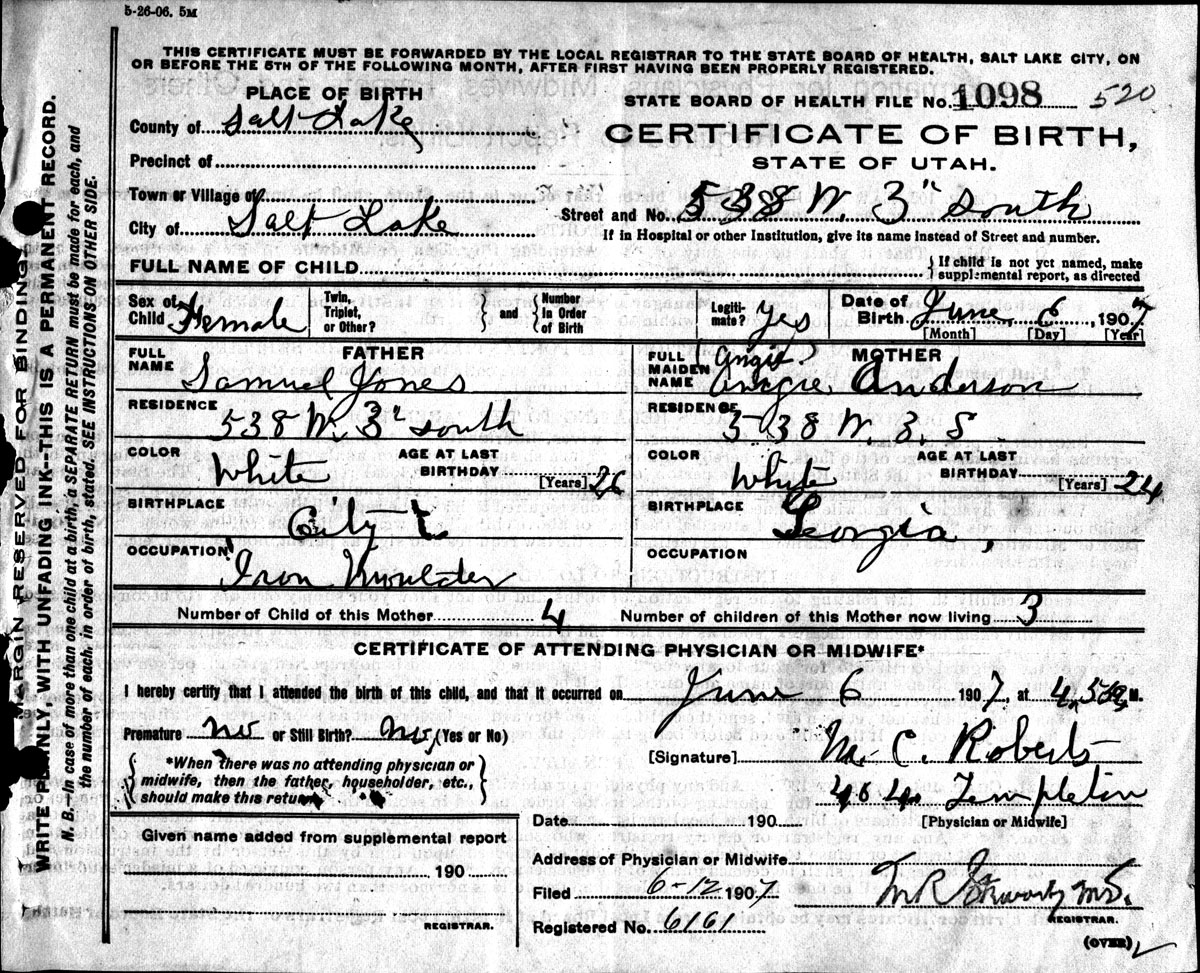 5-26-06. 5M
THIS CERTIFICATE MUST BE FORWARDED BY THE LOCAL REGISTRAR TO THE STATE BOARD OF HEALTH, SALT LAKE CITY, ON
OR BEFORE THE 5TH OF THE FOLLOWING MONTH, AFTER FIRST HAVING BEEN PROPERLY REGISTERED.
PLACE OF BIRTH
STATE BOARD OF HEALTH FILE No. 1098 520
County of Salt Lake
CERTIFICATE OF BIRTH,
STATE OF UTAH.
Precinct of
Town or Village of
Street and No. 538 W. 3" South
City of Salt Lake
If in Hospital or other Institution, give its name instead of Street and number.
FULL NAME OF CHILD
If child is not yet named, make
supplemental report, as directed
Sex of Child Female
Twin, Triplet, or Other?
and
Number in Order of Birth
Legiti-mate? Yes
Date of Birth June 6, 1907
[Month] [Day] [Year]
FATHER
FULL NAME Samuel Jones
MOTHER
FULL MAIDEN NAME (Angie) Angie Anderson
RESIDENCE 538 W. 3" South
RESIDENCE 538 W. 3. S
COLOR White
AGE AT LAST BIRTHDAY 26 [Years]
COLOR White
AGE AT LAST BIRTHDAY 24 [Years]
BIRTHPLACE City
BIRTHPLACE Georgia,
OCCUPATION Iron Moulder
OCCUPATION
Number of Child of this Mother 4
Number of children of this Mother now living 3
CERTIFICATE OF ATTENDING PHYSICIAN OR MIDWIFE*
I hereby certify that I attended the birth of this child, and that it occurred on June 6 1907, at 4 M.
Premature No or Still Birth? No, (Yes or No)
[Signature] M. C. Roberts
*When there was no attending physician or
midwife, then the father, householder, etc.,
should make this return
404 Templeton
[Physician or Midwife]
Date 190
Given name added from supplemental report
190
REGISTRAR.
Address of Physician or Midwife
Filed 6-12 1907
REGISTRAR.
Registered No. 6161
(OVER)
MARGIN RESERVED FOR BINDING.
WRITE PLAINLY, WITH UNFADING INK--THIS IS A PERMANENT RECORD.
N.B. In case of more than one child at a birth, a SEPARATE RETURN must be made for each, and
the number of each, in order of birth, stated. SEE INSTRUCTIONS ON OTHER SIDE.